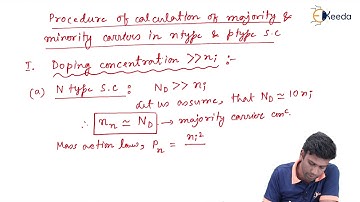 Procedure of calculation of majority &
minority carriers in n type & p type s.c
Ekeeda
I. Doping concentration >> ni :-
(a) N type s.c : ND >> ni
Let us assume, that ND ≃ 10 ni
∴ nn ≃ ND → majority carrier concⁿ.
Mass action law, Pn = ni²